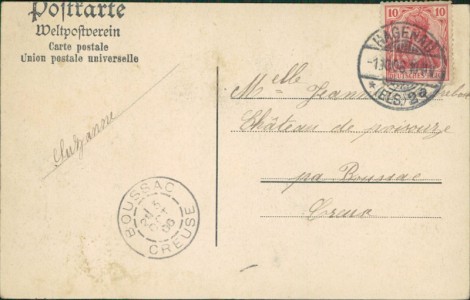 Postkarte
Weltpostverein
Carte postale
Union postale universelle
10 10
HAGENAU
*(ELS.) 2a
Melle Jeanne
Château de
par Boussac
Creuse
Suzanne
BOUSSAC
CREUSE